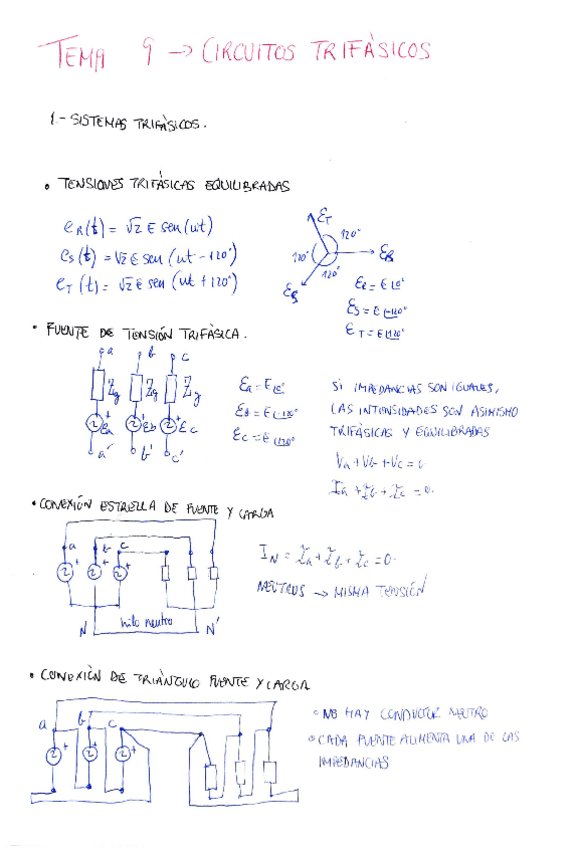 TEMA 9 → CIRCUITOS TRIFÀSICOS
1.- SISTEMAS TRIFÀSICOS.
• TENSIONES TRIFÁSICAS EQUILIBRADAS
e_R(t) = √2 E sen(ωt)
e_S(t) = √2 E sen(ωt - 120°)
e_T(t) = √2 E sen(ωt + 120°)
ε_T
120°
120°
120°
ε_R
ε_S
ε_R = E∠0°
ε_S = E∠-120°
ε_T = E∠120°
• FUENTE DE TENSIÓN TRIFÀSICA.
a b c
Zg Zg Zg
+ εa + εb + εc
a' b' c'
εa = E∠0°
εb = E∠-120°
εc = E∠120°
SI IMPEDANCIAS SON IGUALES,
LAS INTENSIDADES SON ASIMISMO
TRIFÁSICAS Y EQUILIBRADAS
Va + Vb + Vc = 0
Ia + Ib + Ic = 0.
• CONEXIÓN ESTRELLA DE FUENTE Y CARGA
a b c
+ + +
N hilo neutro N'
I_N = Ia + Ib + Ic = 0.
NEUTROS → MISMA TENSIÓN
• CONEXIÒN DE TRIÁNGULO FUENTE Y CARGA
a b c
+ + +
• NO HAY CONDUCTOR NEUTRO
• CADA FUENTE ALIMENTA UNA DE LAS
IMPEDANCIAS